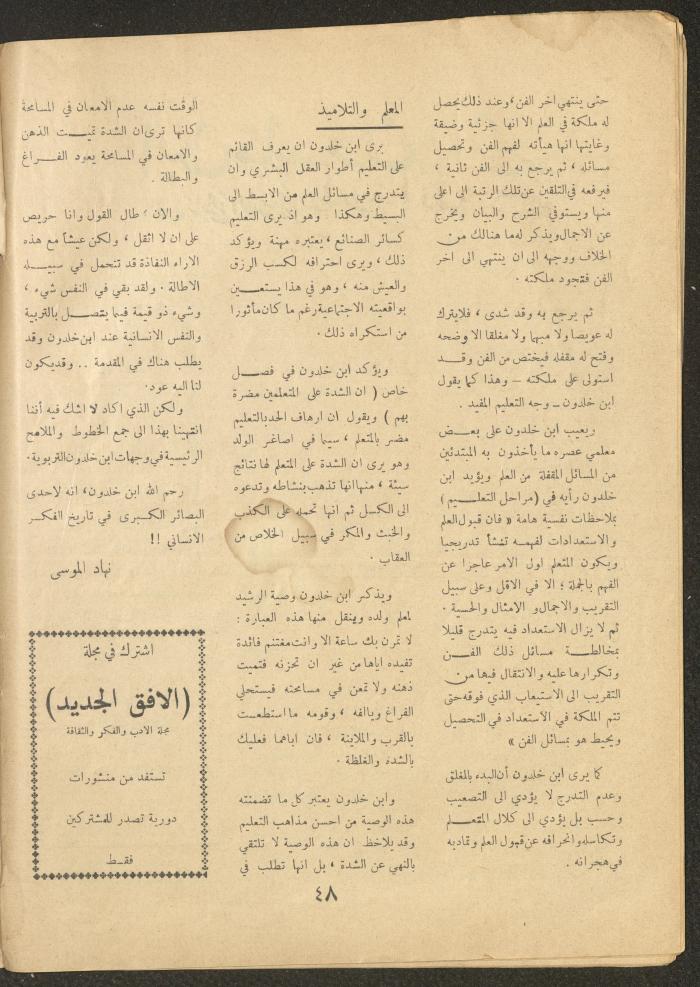 حتى ينتهي اخر الفن، وعند ذلك يحصل
له ملكة في العلم الا انها جزئية وضيقة
وغايتها انها هيأته لفهم الفن وتحصيل
مسائله ، ثم يرجع به الى الفن ثانية ،
فيرفعه في التلقين عن تلك الرتبة الى اعلى
منها ويستوفي الشرح والبيان ويخرج
عن الاجمال ويذكر له ما هنالك من
الخلاف ووجهه الى ان ينتهي الى اخر
الفن فتجود ملكته .
ثم يرجع به وقد شدى ، فلا يترك
له عويصا ولا مبهما ولا مغلقا الا وضحه
وفتح له مقفله فيختص من الفن وقد
استولى على ملكته – وهذا كما يقول
ابن خلدون – وجه التعليم المفيد .
ويعيب ابن خلدون على بعض
معلمي عصره ما يأخذون به المبتدئين
من المسائل المقفلة من العلم ويؤيد ابن
خلدون رأيه في ( مراحل التعليم )
بملاحظات نفسية هامة « فان قبول العلم
والاستعدادات لفهمه تنشأ تدريجيا
ويكون المتعلم اول الامر عاجزا عن
الفهم بالجملة ؛ الا في الاقل وعلى سبيل
التقريب والاجمال و الامثال والحسية .
ثم لا يزال الاستعداد فيه يتدرج قليلا
بمخالطة مسائل ذلك الفن
وتكرارها عليه والانتقال فيها من
التقريب الى الاستيعاب الذي فوقه حتى
تتم الملكة في الاستعداد في التحصيل
ويحيط هو بمسائل الفن »
كما يرى ابن خلدون أن البدء بالمغلق
وعدم التدرج لا يؤدي الى التصعيب
وحسب بل يؤدي الى كلال المتعلم
وتكاسله وانحرافه عن قبول العلم وتماديه
في هجرانه .
المعلم والتلاميذ
يرى ابن خلدون ان يعرف القائم
على التعليم أطوار العقل البشري وان
يتدرج في مسائل العلم من الابسط الى
البسيط وهكذا . وهو اذ يرى التعليم
كسائر الصنائع ، يعتبره مهنة ويؤكد
ذلك ، ويرى احترافه لكسب الرزق
والعيش منه ، وهو في هذا يستعين
بواقعيته الاجتماعية رغم ما كان مأثورا
من استكراه ذلك .
ويؤكد ابن خلدون في فصل
خاص ( ان الشدة على المتعلمين مضرة
بهم ) ويقول ان ارهاف الحد بالتعليم
مضر بالمتعلم ، سيما في اصاغر الولد
وهو يرى ان الشدة على المتعلم لها نتائج
سيئة ، منها انها تذهب بنشاطه وتدعوه
الى الكسل ثم انها تحمله على الكذب
والخبث والمكر في سبيل الخلاص من
العقاب .
ويذكر ابن خلدون وصية الرشيد
لمعلم ولده وينقل منها هذه العبارة :
لا تمرن بك ساعة الا وانت مغتنم فائدة
تفيده اياها من غير ان تحزنه فتميت
ذهنه ولا تمعن في مسامحته فيستحلي
الفراغ ويألفه ، وقومه ما استطعت
بالقرب والملاينة ، فان اباهما فعليك
بالشدة والغلظة .
وابن خلدون يعتبر كل ما تضمنته
هذه الوصية من احسن مذاهب التعليم
وقد يلاحظ ان هذه الوصية لا تلتقي
بالنهي عن الشدة ، بل انها تطلب في
الوقت نفسه عدم الامعان في المسامحة
كانها ترى ان الشدة تميت الذهن
والامعان في المسامحة يعود الفراغ
والبطالة .
والان ، طال القول وانا حريص
على ان لا اثقل ، ولكن عيشاً مع هذه
الاراء النفاذة قد تتحمل في سبيله
الاطالة . ولقد بقي في النفس شيء ،
وشيء ذو قيمة فيما يتصل بالتربية
والنفس الانسانية عند ابن خلدون وقد
يطلب هناك في المقدمة .. وقد يكون
لنا اليه عود .
ولكن الذي اكاد لا اشك فيه أننا
انتهينا بهذا الى جمع الخطوط والملامح
الرئيسية في وجهات ابن خلدون التربوية .
رحم الله ابن خلدون ، انه لاحدى
البصائر الكبرى في تاريخ الفكر
الانساني !!
نهاد الموسى
اشترك في مجلة
(الافق الجديد)
مجلة الادب والفكر والثقافة
تستفد من منشورات
دورية تصدر للمشتركين
فقط
٤٨